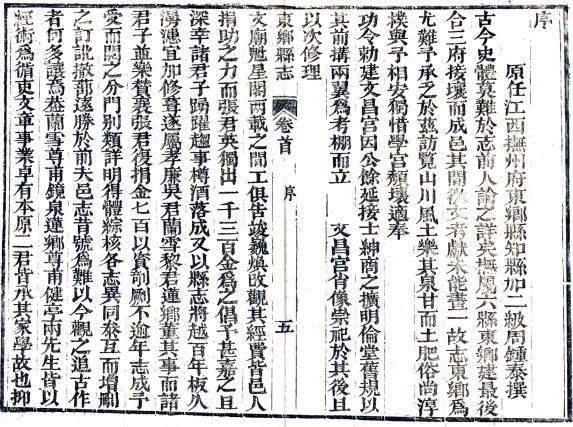 序
原任江西撫州府東鄉縣知縣加二級周鍾泰撰
古今史體莫難於志前人論之詳矣撫屬六縣東鄉建最後
合三府接壤而成邑其間徵文考獻未能畫一故志東鄉為
尤難予承乏於茲訪覽山川風土樂其泉甘而土肥俗尚淳
樸與予相安獨惜學宮頹壞適奉
功令勅建文昌宮因公餘延接士紳商之擴明倫堂舊規以
其前搆兩翼為考棚而立 文昌宮肖像崇祀於其後且
以次修理
東鄉縣志 卷首 序 五
文廟魁星閣兩載之間工俱告竣巍煥改觀其經費皆邑人
捐助之力而張君英獨出一千三百金為之倡予甚嘉之且
深幸諸君子踴躍趨事樽酒落成又以縣志將越百年板久
漫漶宜加修葺遂屬孝廉吳君蘭雪黎君蓮鄉董其事而諸
君子並樂贊襄張君復捐金七百以資剞劂不逾年志成予
受而閱之分門別類詳明得體綜核各志異同叅互而增刪
之訂訛撤鄙遠勝於前夫邑志昔號為難以今觀之追古作
者何多讓焉葢蘭雪尊甫鏡泉蓮鄉尊甫健亭兩先生皆以
經術為循吏文章事業卓有本原二君皆承其家學故也抑